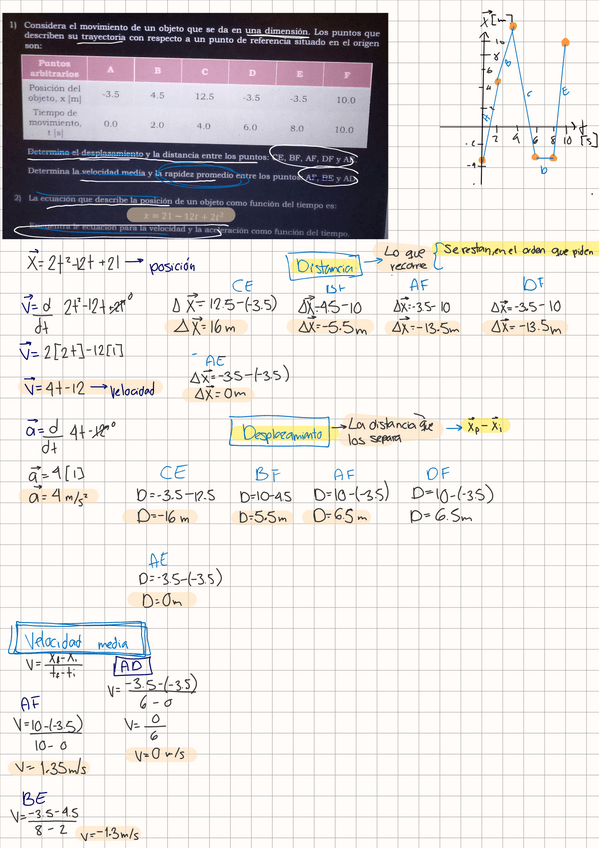 1) Considera el movimiento de un objeto que se da en una dimensión. Los puntos que
describen su trayectoria con respecto a un punto de referencia situado en el origen
son:
Puntos arbitrarios A B C D E F
Posición del objeto, x [m] -3.5 4.5 12.5 -3.5 -3.5 10.0
Tiempo de movimiento, t [s] 0.0 2.0 4.0 6.0 8.0 10.0
Determina el desplazamiento y la distancia entre los puntos: CE, BF, AF, DF y AE
Determina la velocidad media y la rapidez promedio entre los puntos AF, BE y AD
2) La ecuación que describe la posición de un objeto como función del tiempo es:
x = 21 − 12t + 2t²
Encuentra la ecuación para la velocidad y la aceleración como función del tiempo.
X[m]
10
8
6
4
2
-2
-4
A
B
C
D
E
2 4 6 8 10 t[s]
X = 2t²-12t+21 → posición
V = d/dt 2t²-12t+21
V = 2[2t]-12[1]
V = 4t-12 → velocidad
a = d/dt 4t-12
a = 4[1]
a = 4 m/s²
Distancia → Lo que recorre { Se restan, en el orden que piden
CE
ΔX = 12.5-(-3.5)
ΔX = 16m
BF
ΔX=4.5-10
ΔX=-5.5m
AF
ΔX=-3.5-10
ΔX=-13.5m
DF
ΔX=-3.5-10
ΔX=-13.5m
AE
ΔX=-3.5-(-3.5)
ΔX=0m
Desplazamiento → La distancia que los separa → Xf-Xi
CE
D=-3.5-12.5
D=-16m
BF
D=10-4.5
D=5.5m
AF
D=10-(-3.5)
D=6.5m
DF
D=10-(-3.5)
D=6.5m
AE
D=-3.5-(-3.5)
D=0m
Velocidad media
V= Xf-Xi / tf-ti
AD
V= -3.5-(-3.5) / 6-0
V= 0/6
V=0 m/s
AF
V= 10-(-3.5) / 10-0
V= 1.35m/s
BE
V= -3.5-4.5 / 8-2
V=-1.3m/s